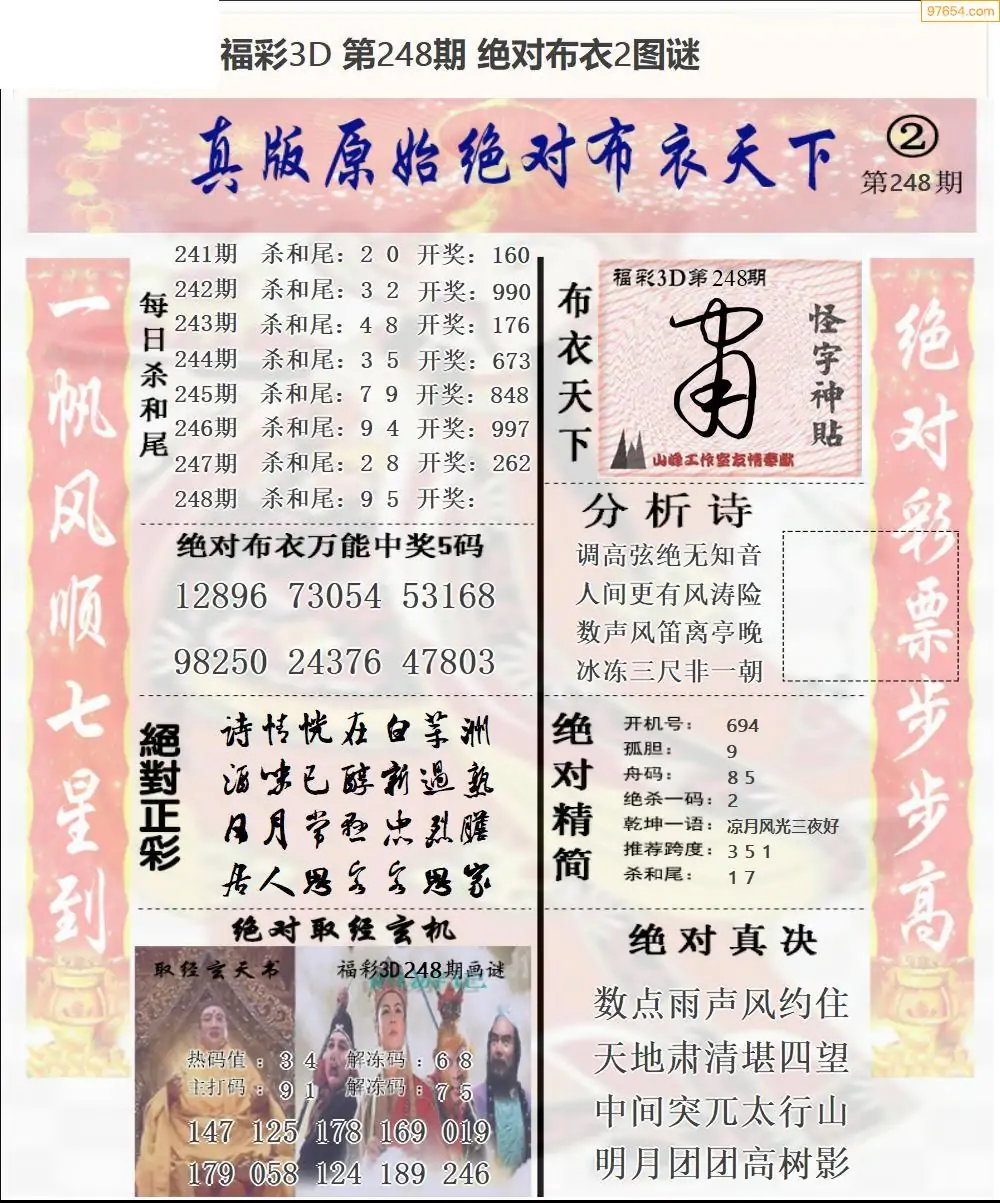 97654.com
福彩3D 第248期 绝对布衣2图谜
真版原始绝对布衣天下
②
第248期
一帆风顺七星到
每日杀和尾
241期 杀和尾：2 0 开奖：160
242期 杀和尾：3 2 开奖：990
243期 杀和尾：4 8 开奖：176
244期 杀和尾：3 5 开奖：673
245期 杀和尾：7 9 开奖：848
246期 杀和尾：9 4 开奖：997
247期 杀和尾：2 8 开奖：262
248期 杀和尾：9 5 开奖：
绝对布衣万能中奖5码
12896 73054 53168
98250 24376 47803
絕對正彩
诗情恍在白苹洲
酒味已醇新過熟
日月常悬忠烈膽
居人思客客思家
绝对取经玄机
取经玄天书
福彩3D248期画谜
热码值：3 4 解冻码：6 8
主打码：9 1 解冻码：7 5
147 125 178 169 019
179 058 124 189 246
布衣天下
福彩3D第248期
怪字神貼
山峰工作室友情奉献
分析诗
调高弦绝无知音
人间更有风涛险
数声风笛离亭晚
冰冻三尺非一朝
绝对精简
开机号：694
孤胆：9
舟码：8 5
绝杀一码：2
乾坤一语：凉月风光三夜好
推荐跨度：3 5 1
杀和尾：1 7
绝对真决
数点雨声风约住
天地肃清堪四望
中间突兀太行山
明月团团高树影
绝对彩票步步高